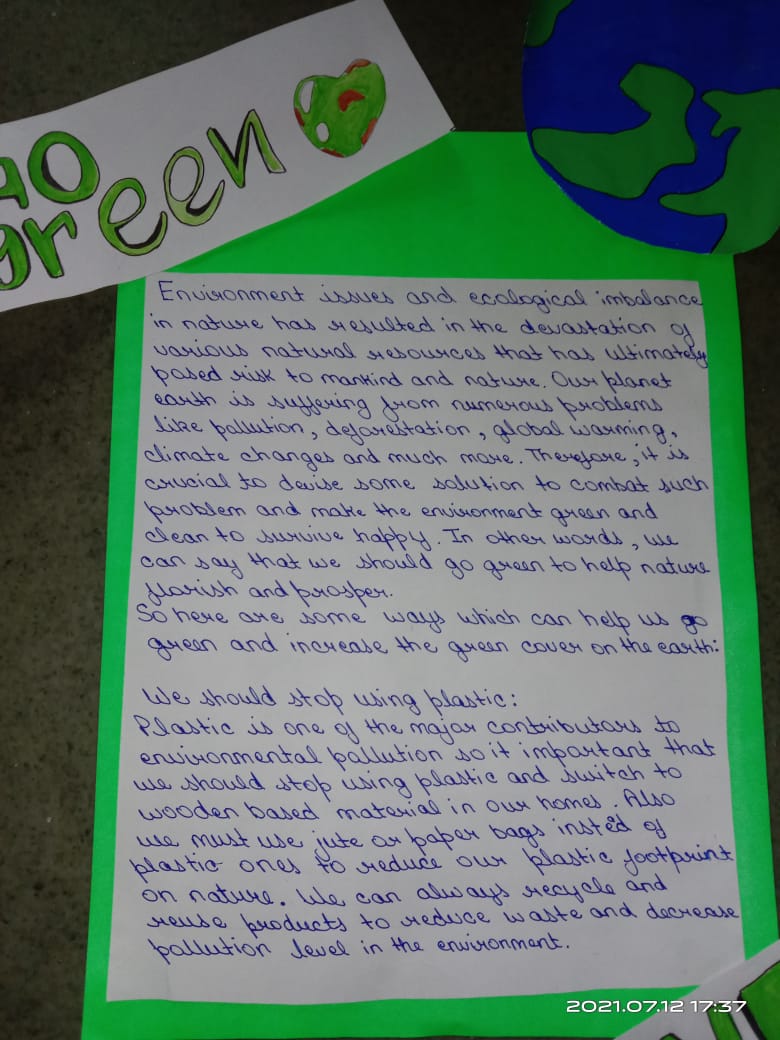 GO
green
Environment issues and ecological imbalance
in nature has resulted in the devastation of
various natural resources that has ultimately
posed risk to mankind and nature. Our planet
earth is suffering from numerous problems
like pollution, deforestation, global warming,
climate changes and much more. Therefore, it is
crucial to devise some solution to combat such
problem and make the environment green and
clean to survive happy. In other words, we
can say that we should go green to help nature
florish and prosper.
So here are some ways which can help us go
green and increase the green cover on the earth:
We should stop using plastic:
Plastic is one of the major contributors to
environmental pollution so it important that
we should stop using plastic and switch to
wooden based material in our homes. Also
we must use jute or paper bags insted of
plastic ones to reduce our plastic footprint
on nature. We can always recycle and
reuse products to reduce waste and decrease
pollution level in the environment.
2021.07.12 17:37